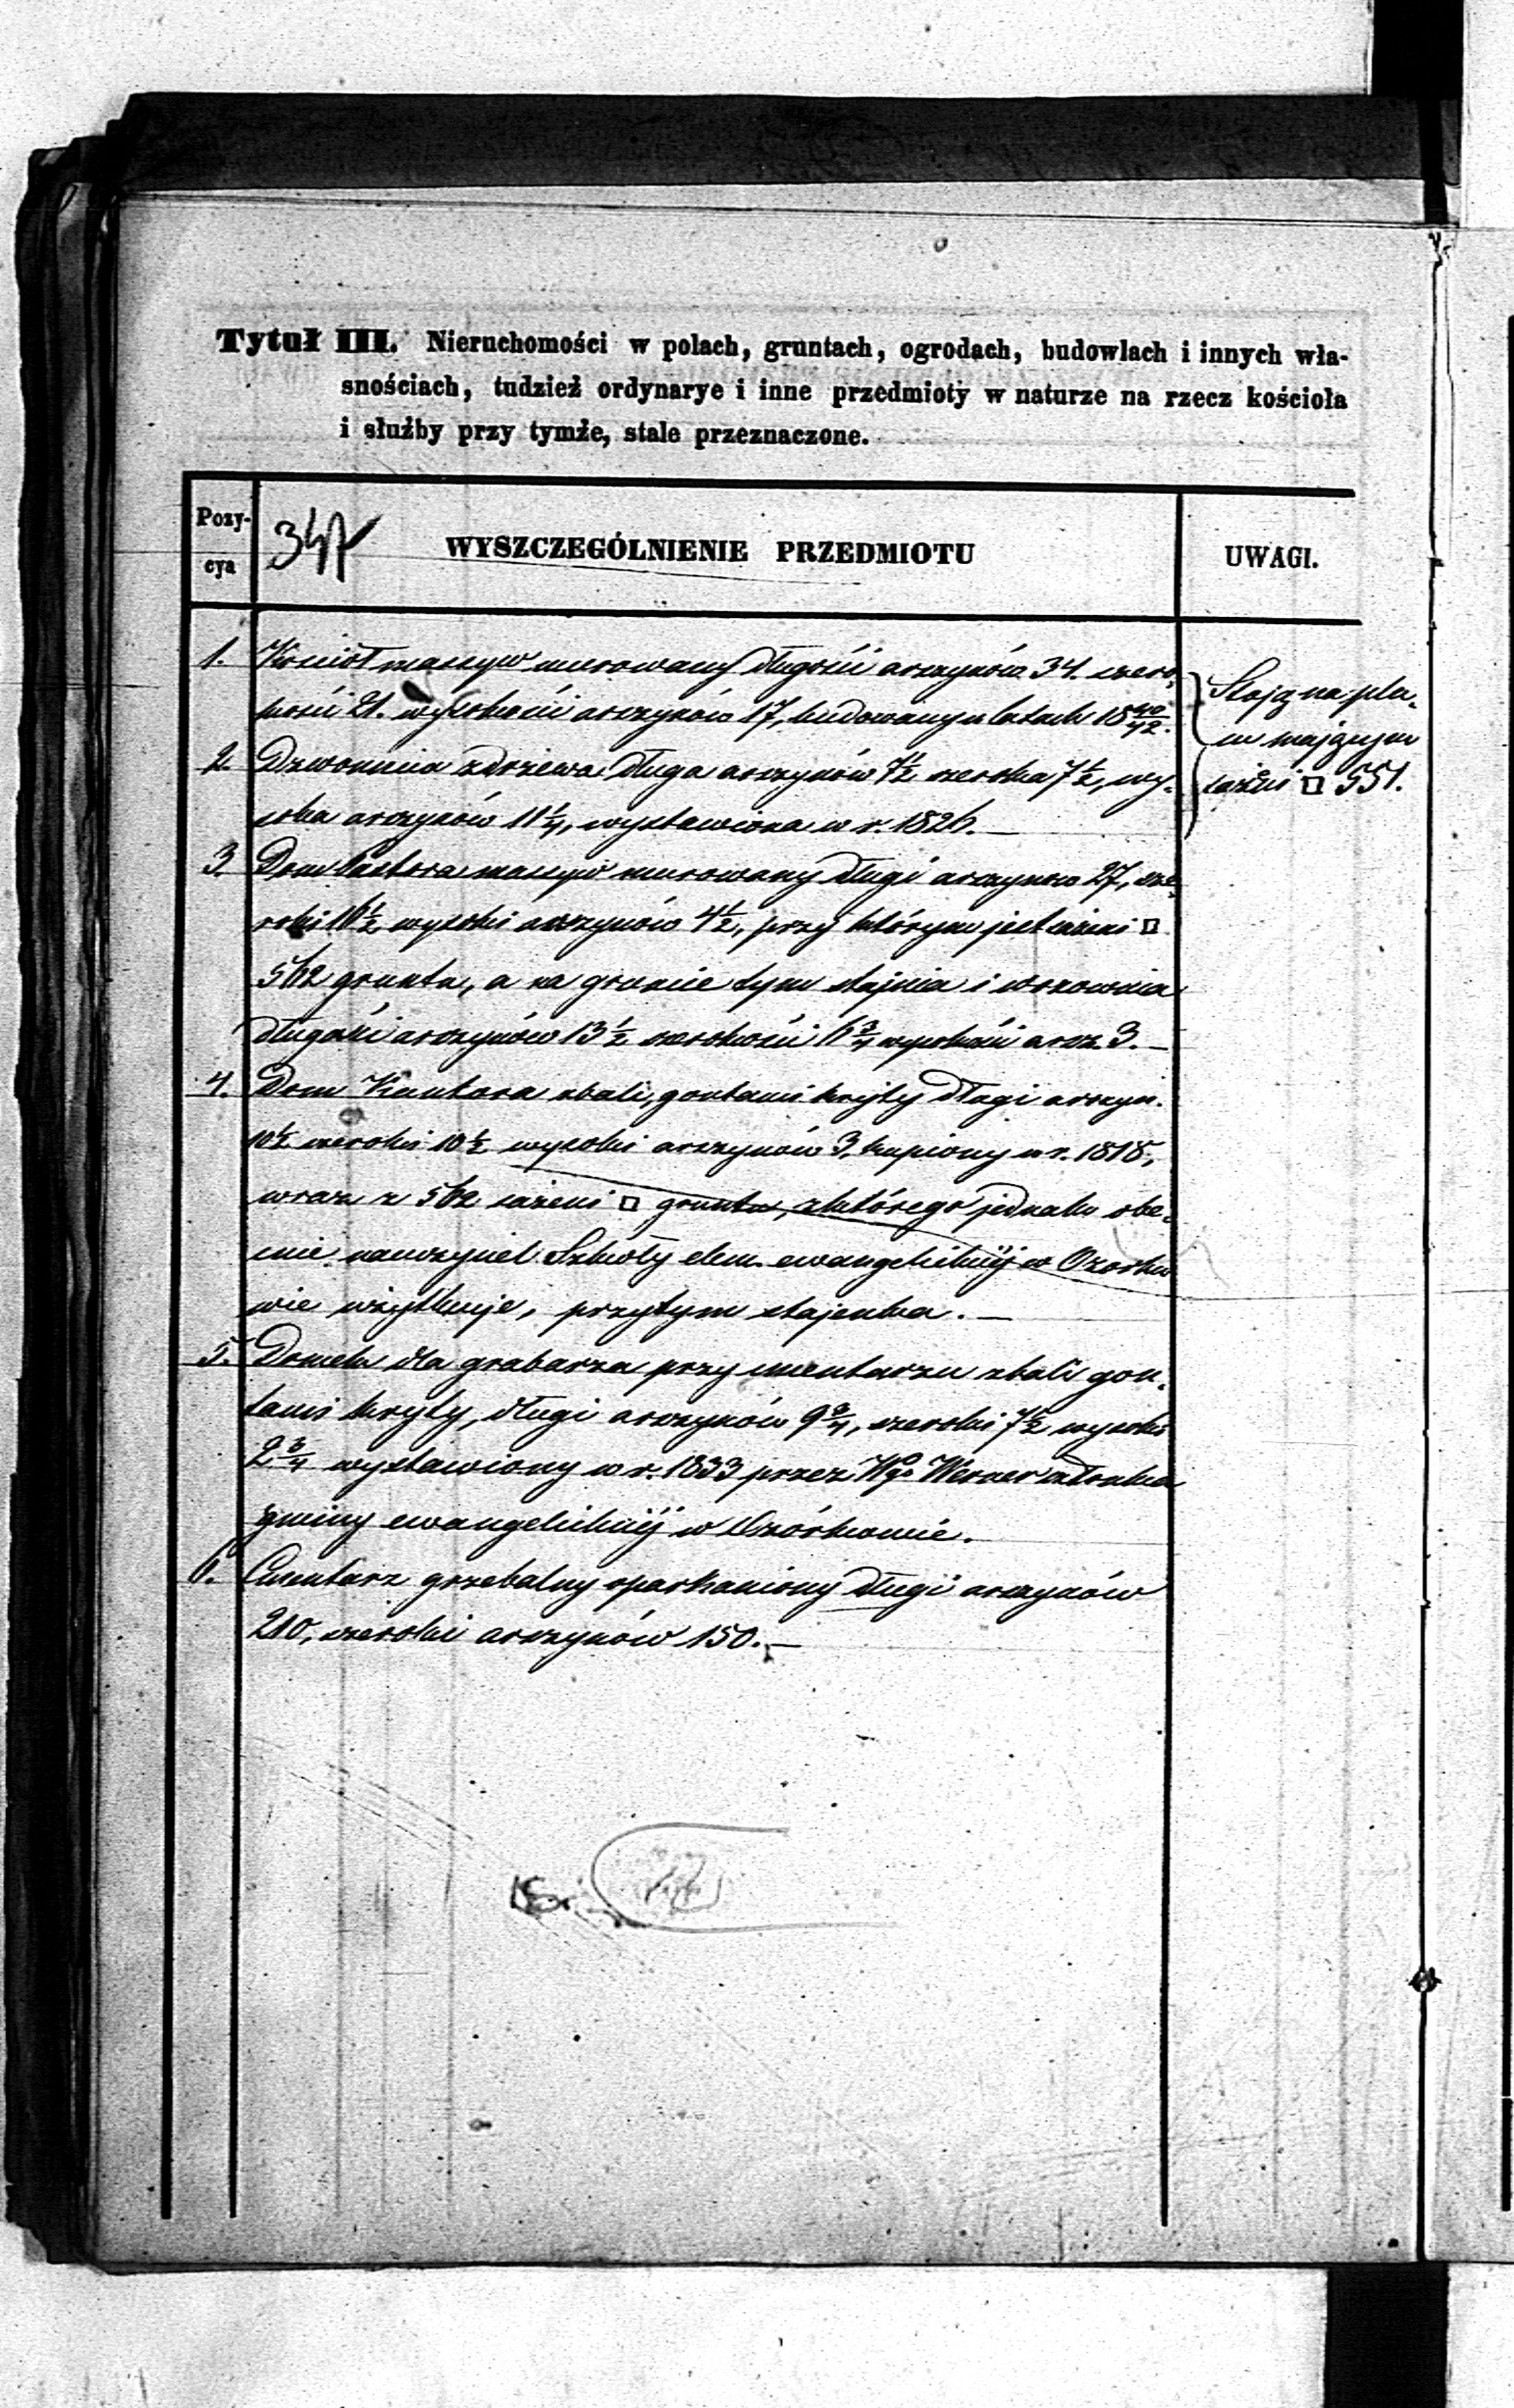 Tytuł III. Nieruchomości w polach, gruntach, ogrodach, budowlach i innych wła-
snościach, tudzież ordynarye i inne przedmioty w naturze na rzecz kościoła
i służby przy tymże, stale przeznaczone.
Pozy-
cya
347
WYSZCZEGÓLNIENIE PRZEDMIOTU
UWAGI.
1. Kościół massyw murowany długości arszynów 34. szero-
kości 21. wysokości arszynów 17, budowany w latach 18 40/42.
2. Dzwonnica z drzewa długa arszynów 7½ szeroka 7½, wy-
soka arszynów 11¼, wystawiona w r. 1826. —
Stoją na pla-
cu mającym
sążni □ 551.
3. Dom Pastora massyw murowany długi arszynów 27, sze-
roki 16½ wysoki arszynów 4½, przy którym jest sążeni □
562 gruntu, a na gruncie tym stajnia i wozownia
długości arszynów 13½ szerokości 6¾ wysokości arsz. 3. —
4. Dom Kantora z bali, gontami kryty długi arszyn.
10½ szeroki 10½ wysoki arszynów 3, kupiony w r. 1818,
wraz z 562 sążeni □ gruntu, z którego jednak obe-
cnie nauczyciel Szkoły elem. ewangelickiéj w Ozorko-
wie użytkuje, przytym stajenka. —
5. Domek dla grabarza przy cmentarzu z bali gon-
tami kryty, długi arszynów 9¾, szeroki 7½ wysoki
2¾ wystawiony w r. 1833 przez Wgo Werner członka
gminy ewangelickiéj w Ozórkowie.
6. Cmentarz grzebalny oparkaniony długi arszynów
210, szeroki arszynów 150. —